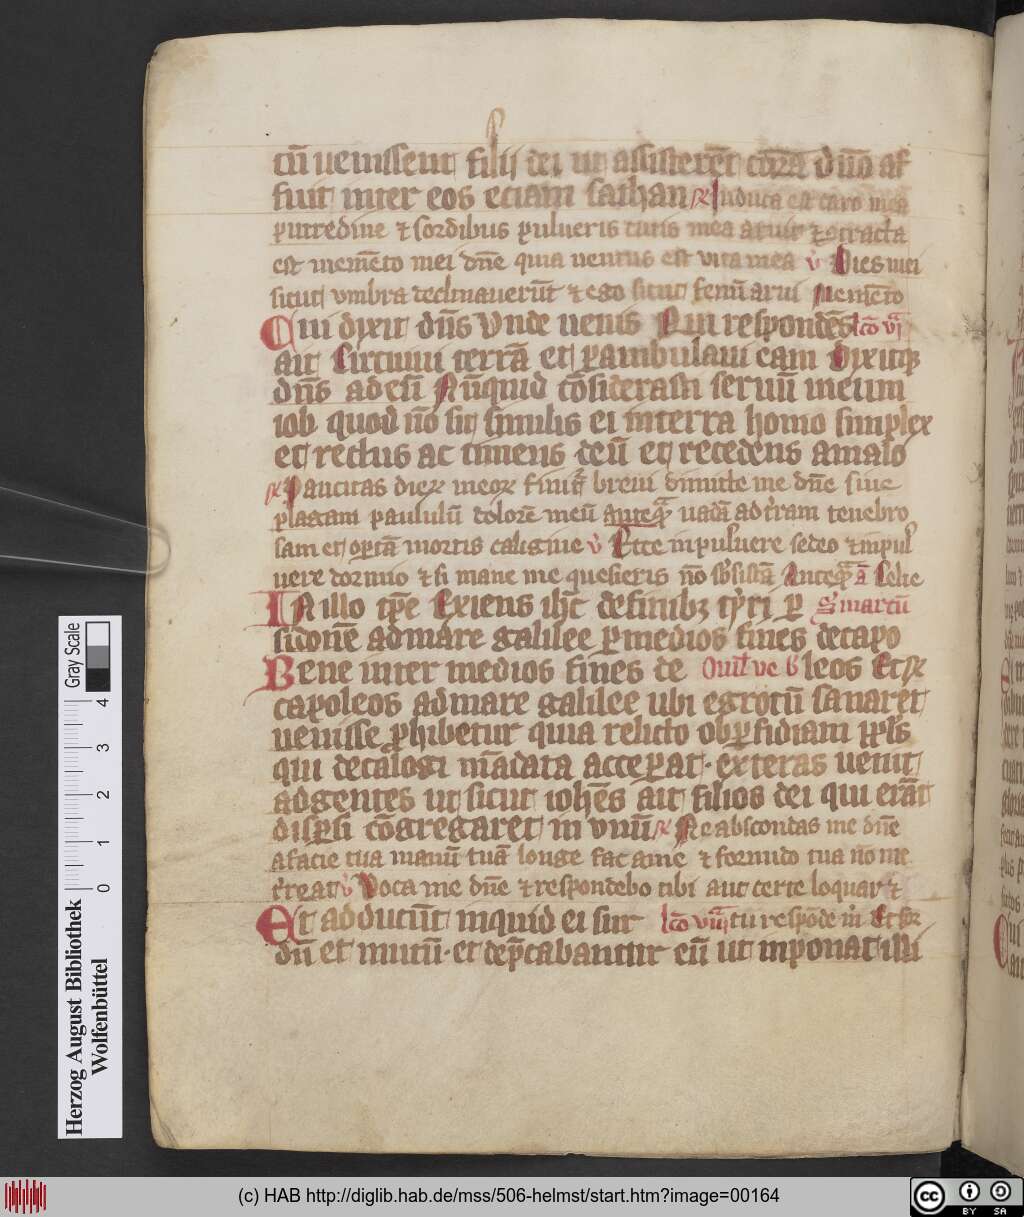 cū venissent filij dei ut assisterēt corā dn̄o af
fuit inter eos eciam sathan ꝶ Induta est caro mea
putredine ⁊ sordibus pulueris cutis mea aruit ⁊ ꝯtracta
est memēto mei dn̄e quia uentus est vita mea ℣ Dies mei
sicut vmbra declinauerūt ⁊ ego sicut fenū arui Memēto
Cui dixit dn̄s Vnde uenis Qui respondēs lc̄o vj
ait Circuiui terrā et ꝑambulaui eam Dixitqꝫ
dn̄s ad eū Nūquid cōsiderasti seruū meum
iob quod nō sit similis ei in terra homo simplex
et rectus ac timens deū et recedens amalo
ꝶ Paucitas dieꝝ meoꝝ finit᷑ breui dimitte me dn̄e sine
plagam paululū dolorē meū anteqᷓ uadā ad t̄ram tenebro
sam et oꝑtā mortis caligine ℣ Ecce in puluere sedeo ⁊ in pul
uere dormio ⁊ si mane me quesieris nō sbsistā Anteqᷓ ā
IN illo tp̄e Exiens ih̄c de finibꝫ tyri ꝑ S marcū
sidonē ad mare galilee ꝑ medios fines decapo
Bene inter medios fines de leos Et
capoleos ad mare galilee ubi egrotū sanaret
uenisse ꝓhibetur quia relicto ob ꝑfidiam ppl̄s
qui decalogi mādata acceperat · exteras uenit
ad gentes ut sicut ioh̄es ait filios dei qui erāt
disꝑsi cōgregaret in vnū ꝶ Ne abscondas me dn̄e
a facie tua manū tuā longe fac ame ⁊ formido tua nō me
t̄reat ℣ Voca me dn̄e ⁊ respondebo tibi aut certe loquar ⁊
Et adducūt inquid ei sur lc̄o vij tu respōde m̄
dū et mutū · et dep̄cabantur eū ut inponat illi
Gray Scale
4
3
2
1
0
Herzog August Bibliothek
Wolfenbüttel
(c) HAB http://diglib.hab.de/mss/506-helmst/start.htm?image=00164
cc BY SA